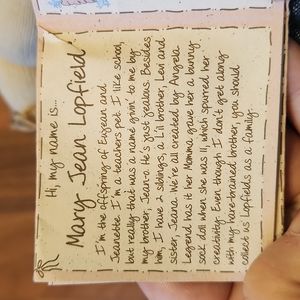 Hi, my name is...
Mary Jean Lopfield
I'm the offspring of Eugean and
Jeanette. I'm a teacher's pet. I like school,
but really that was a name givin to me by
my brother, Jean-o. He's just jealous. Besides
him, I have 2 siblings, a L'il brother, Levi and
sister, Jeana. We're all created by Angela.
Legend has it her Momma gave her a bunny
sock doll when she was 11, which spurred her
creativity. Even though I don't get along
with my hare-brained brother, you should
collect us Lopfields as a family.